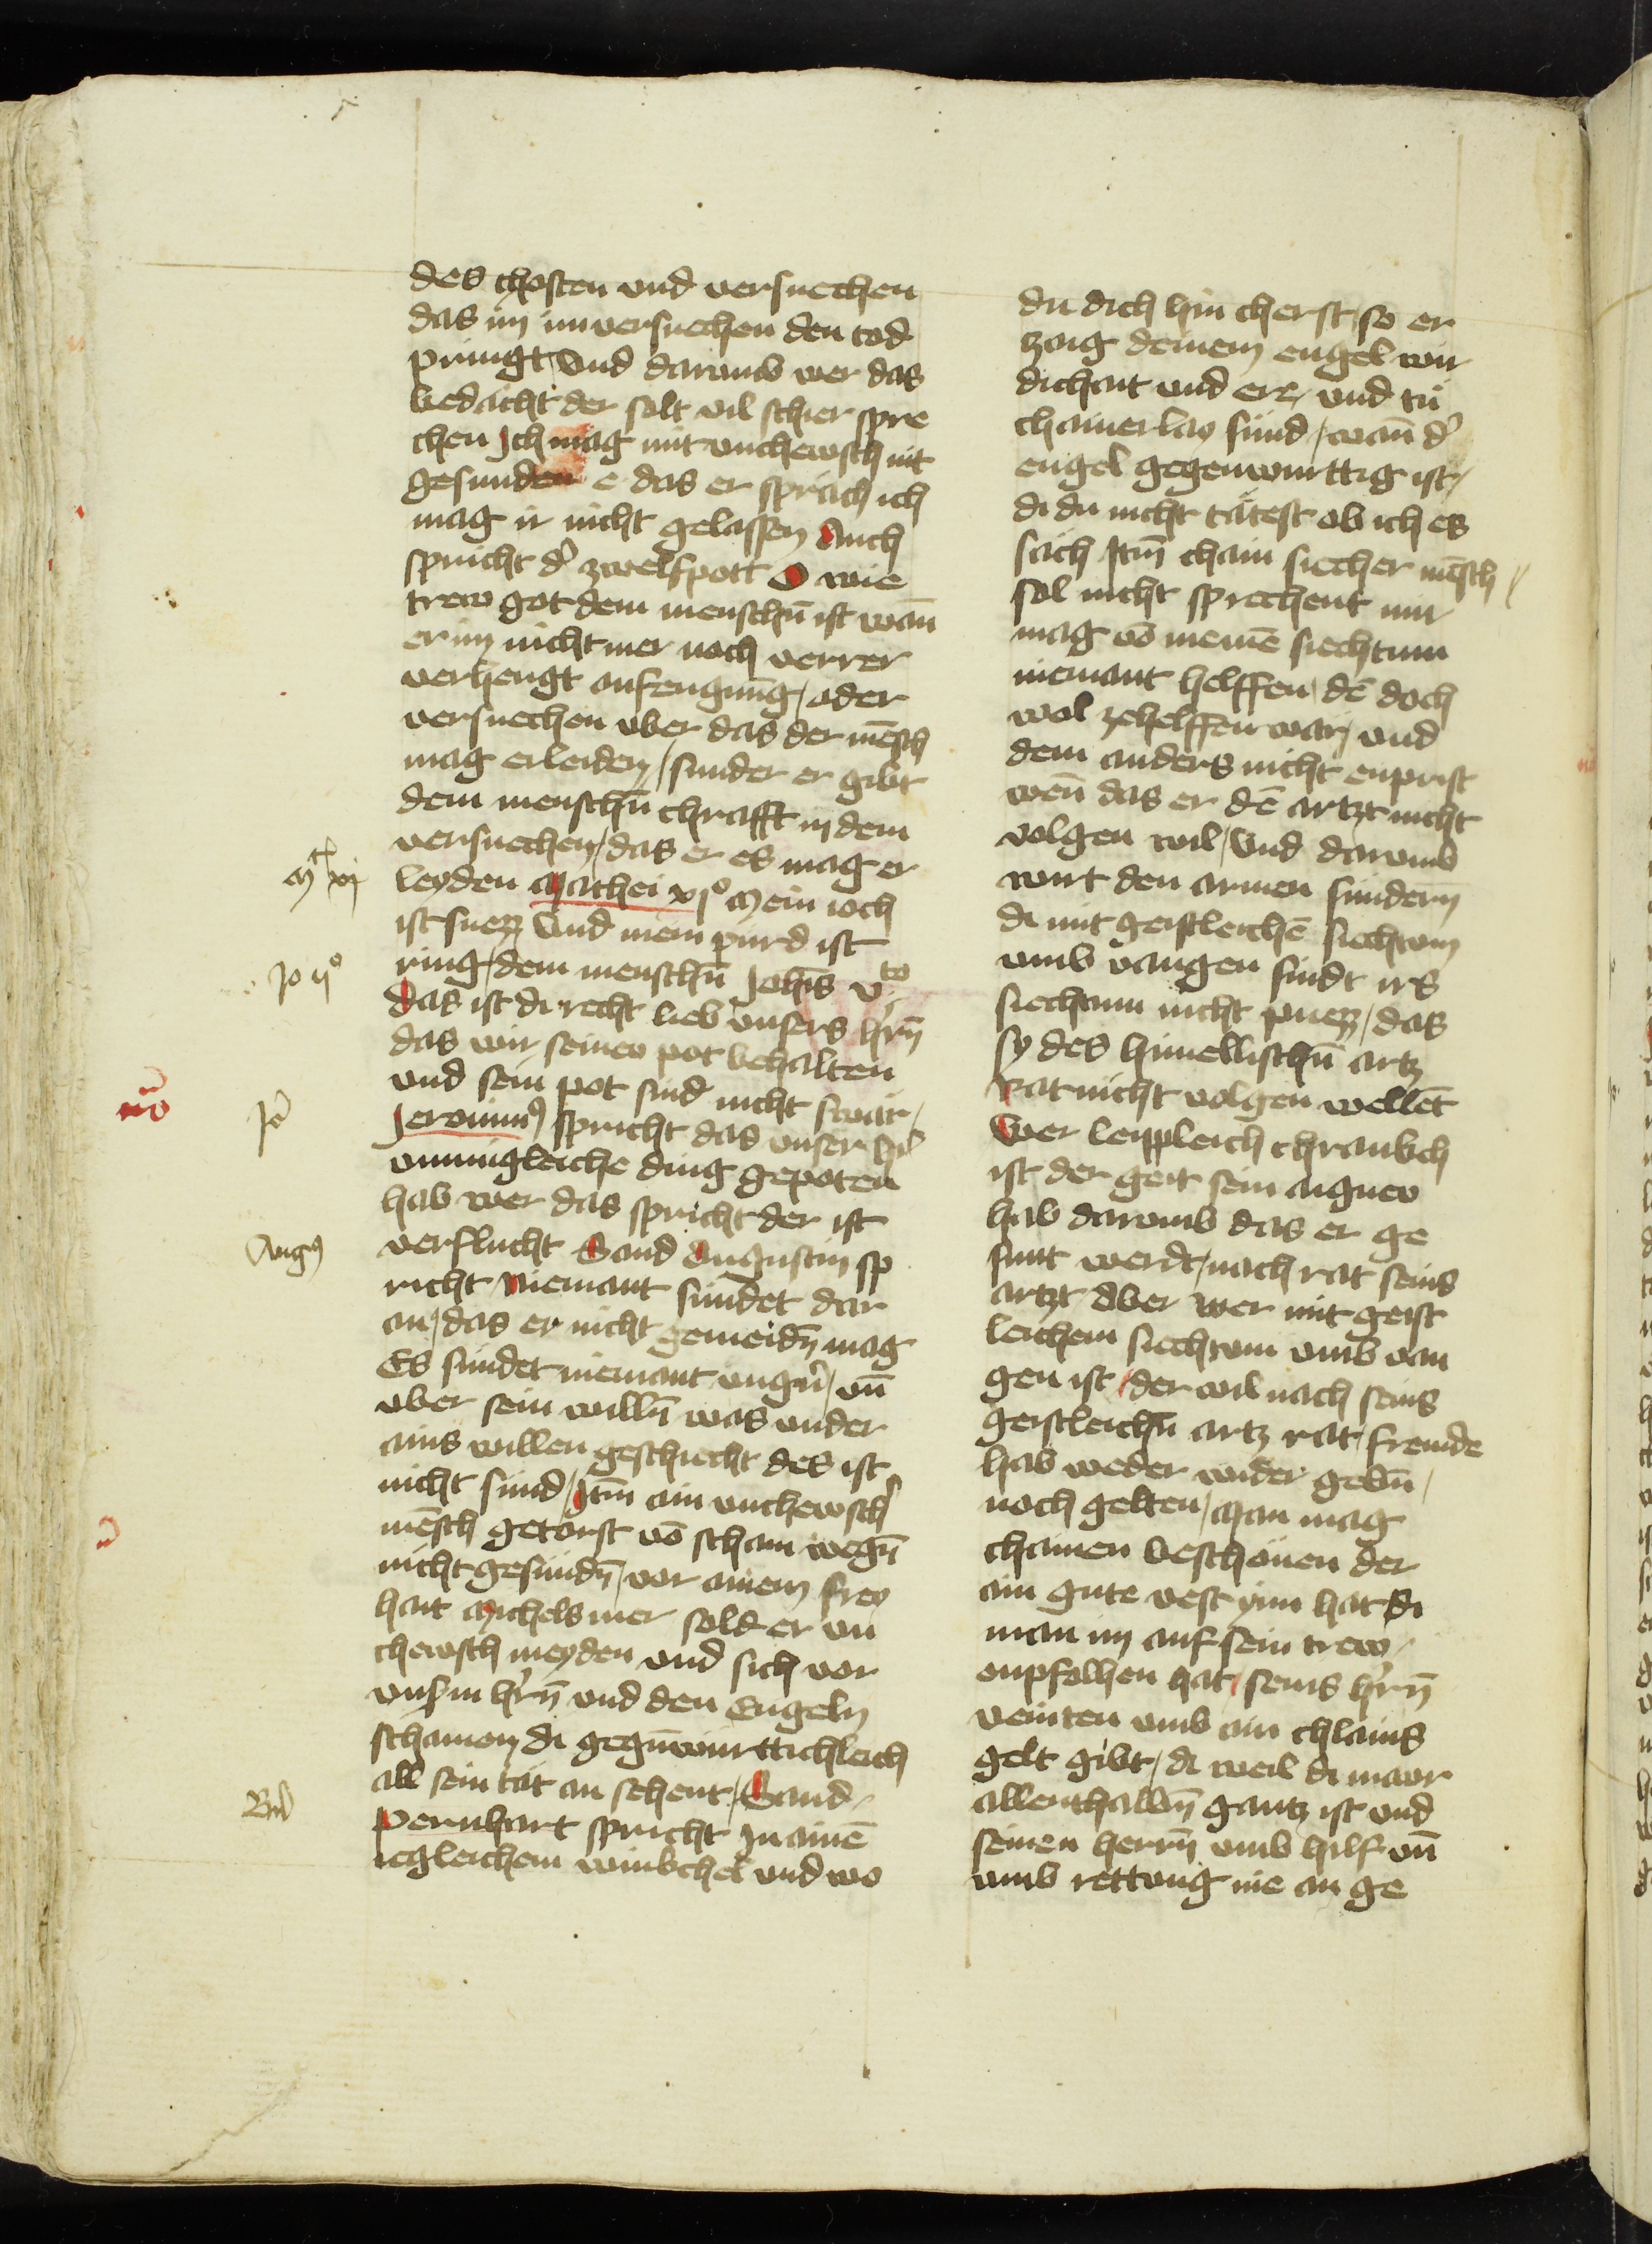 des chosten vnd versuechen
das im im versuechen den tod
pringt Vnd darumb wer das
bedächt der solt vil schier spre
chen Ich mag mit vnchewsch nit
gesunden e das er sprach ich
mag ir nicht gelassen Auch
spricht dˀ zwelfpott O wie
trew got dem menschn̄ ist wan̄
er im nicht mer noch verrer
verhengt anfengung / oder
versuechen vber das der mēsch
mag erleiden / sunder er gibt
dem menschn̄ chrafft in dem
versuechen / das er es mag er
Mt xi
leyden Mathei xjº Mein ioch
ist suezz Vnd mein purd ist
Jo vº
ring / dem menschn̄ Joh̄is vto
das ist di recht lieb vnsers hˀrn̄
das wir seinew pot behalten
vnd sein pot sind nicht swär /
nō
Jeˀ
Jeronimꝯ spricht das vnser hˀ
vnmugleiche ding gepoten
hab wer das spricht der ist
Augꝯ
verflucht Sand Augustin sp
richt Niemant sundet dar
an / das er nicht gemeidn̄ mag
Es sundet niemant vngn̄ / vn̄
vber sein willn̄ was vnder
ains willen geschiecht des ist
nicht sund / Itm̄ ain vnchewschˀ
mēsch getorst vō scham wegn̄
nicht gesundn̄ / vor ainem frey
hait Michels mer sold er vn
chewsch meyden vnd sich vor
vnsˀm hˀrn̄ vnd den Engeln
schamen di gegn̄wurttichleich
all sein tät an sehent / Sand
Bn̄d
Pernhart spricht In ainē
iegleichem winkchel vnd wo
du dich hin cherst / so er
zaig deinem engel wir
dichait vnd ere / vnd tu
chainerlay sund / wan̄ dˀ
engel gegenwurttig ist /
di du nicht tätest ob ich es
säch Itm̄ chain siecher mēsch
sol nicht sprechent mir
mag vō meinē siechtum
niemant helffen dē doch
wol zehelffen wär / vnd
dem anders nicht enprist
wen̄ das er dē artzt nicht
volgen wil / Vnd darumb
wirt den armen sundern
di mit geistleichē siechtum
vmb vangen sindt irs
siechtum nicht puezz / das
sy des himellischn̄ artz
rat nicht volgen wellēt
Wer leippleich chrankch
ist der geit sein aignew
hab darumb das er ge
sunt werde / nach rat seins
artzt Aber wer mit geist
leichem siechtum vmb van
gen ist / der wil nach seins
geistleichn̄ artz rat / fremde
hab weder wider gebn̄ /
noch gelten / Man mag
chainen beschönen der
ain gute vest ynn hat di
man im auf sein trew /
enpfolhen hat / seins hˀrn̄
veinten vmb ain chlains
gelt gibt / di weil di mawr
allenthalbn̄ gantz ist vnd
seinen herrn̄ vmb hilf vn̄
vmb rettung nie an ge